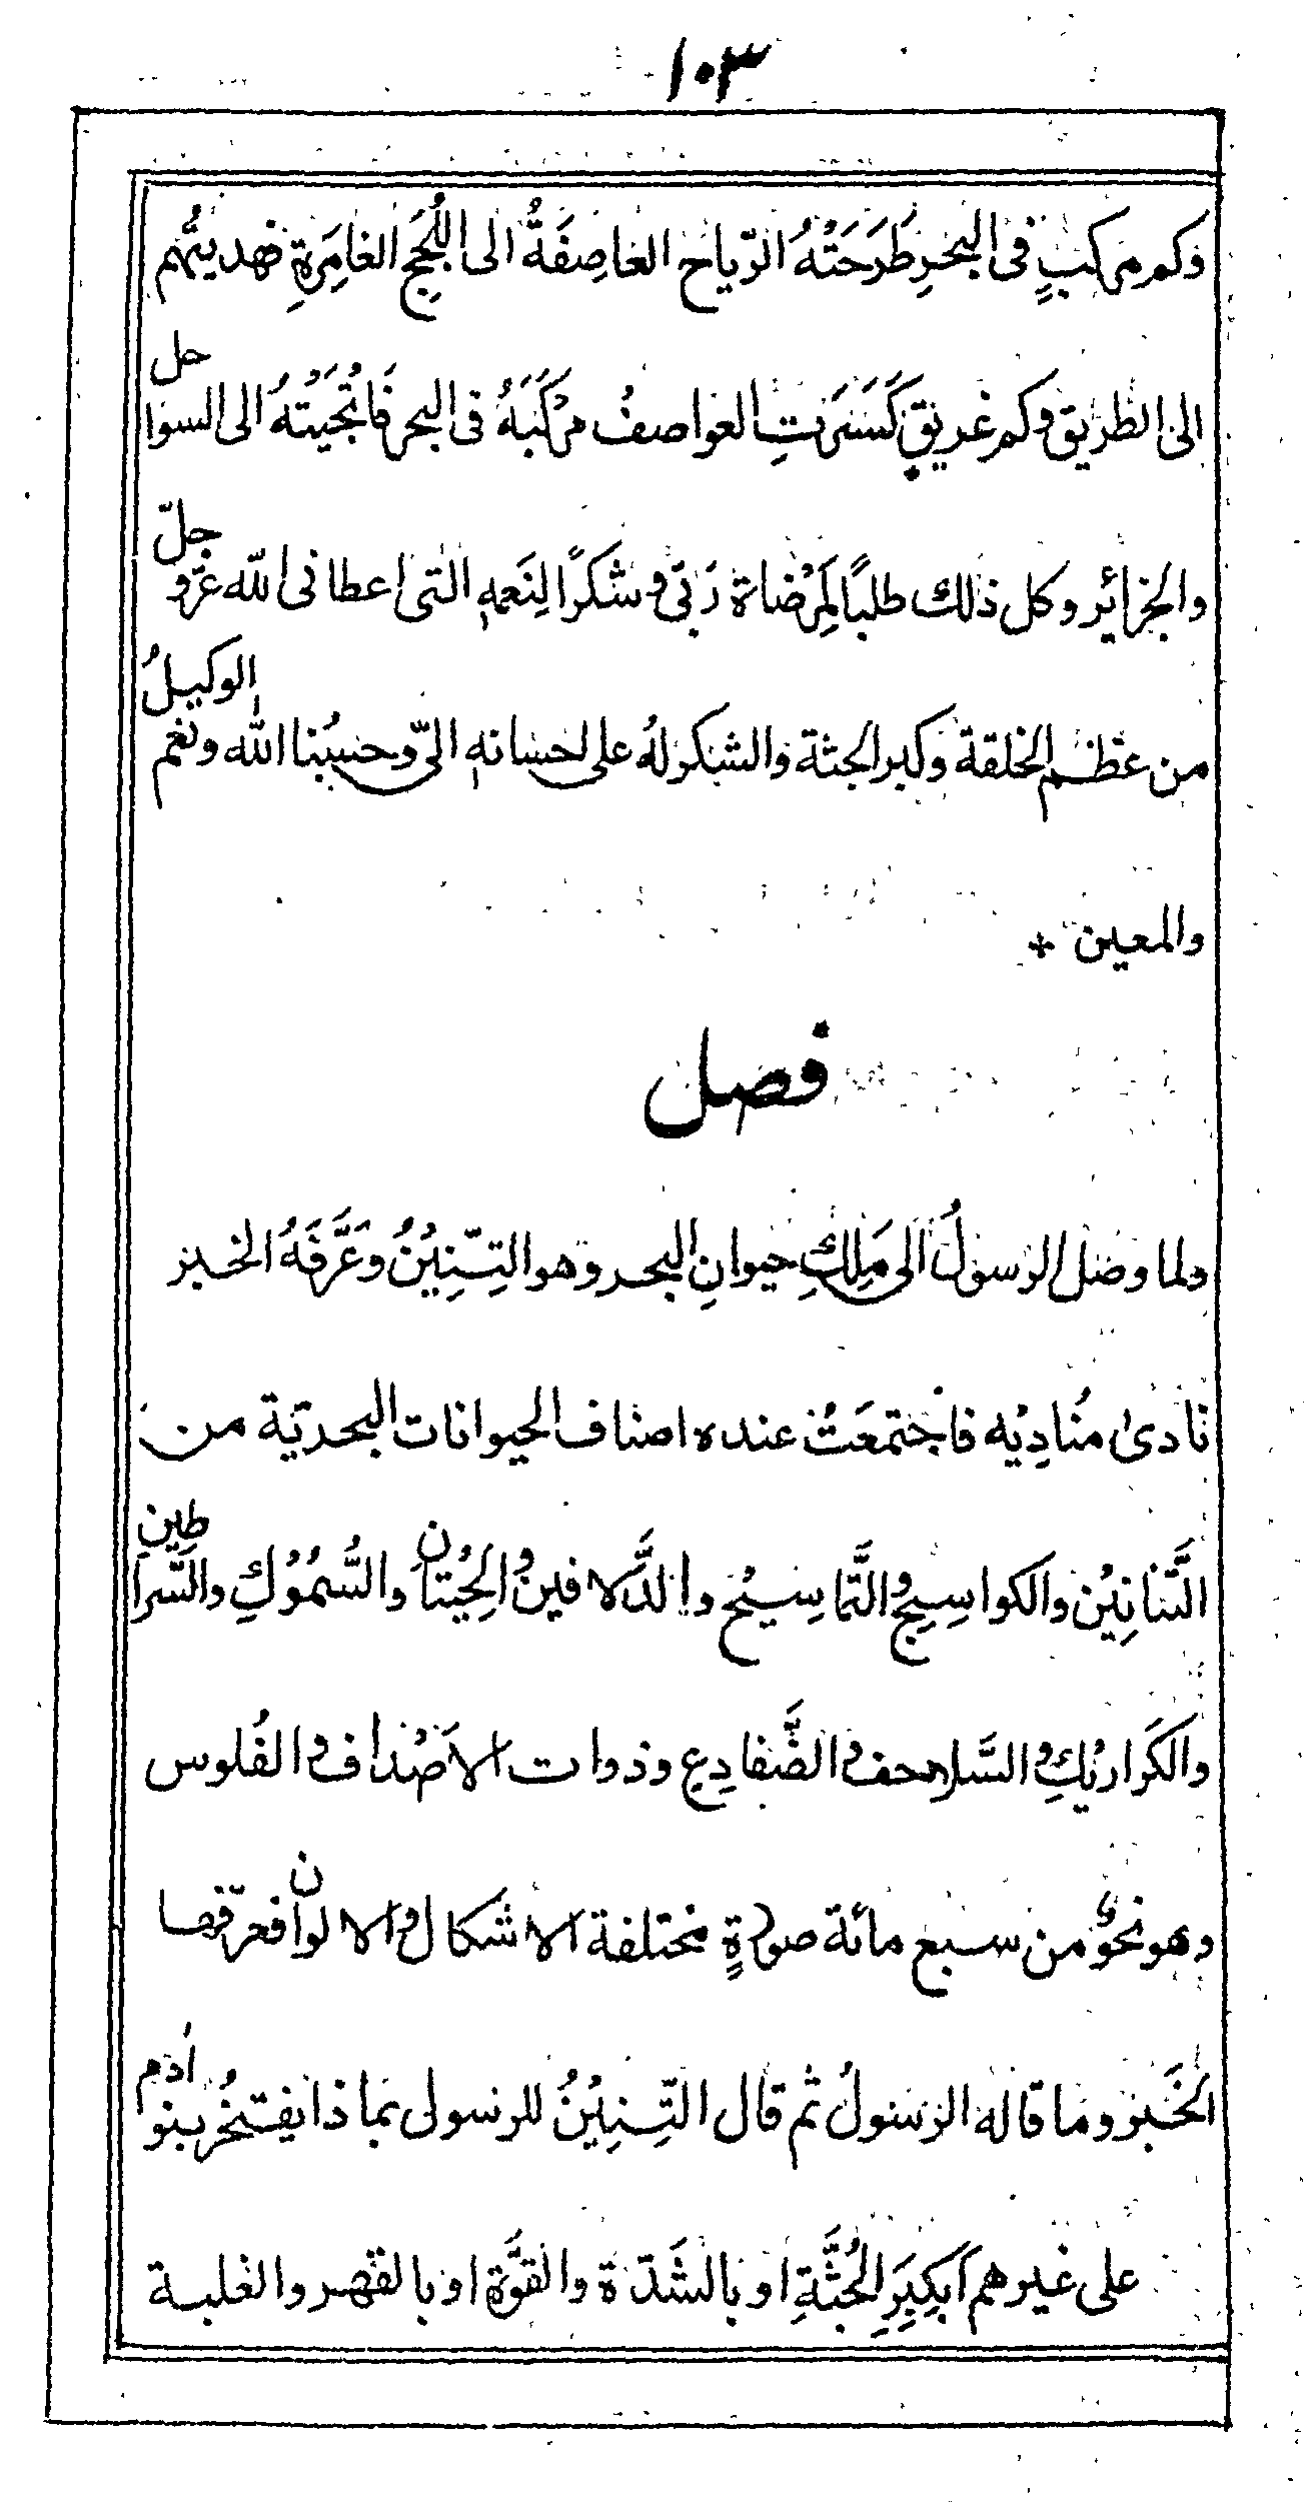 ١٠٣
وكم مركبٍ فى البحرِ طَرَحَتْهُ الرّياح العاصِفَةُ الى اللُّجَجِ الغامِرَةِ فهديتُهم
الى الطريق وكم غريقٍ كَسَرَتِ العواصفُ مَرْكَبَهُ فى البحر فَانْجَيْتُهُ الى السواحل
والجزائر وكل ذلك طلبًا لِمَرْضاة رَبّى وشكرًا لِنَعمهِ التى اعطانى الله عزّ وجلّ
من عظم الخلقة وكبر الجثة والشكر لهُ على احسانهِ الىّ وحسبُنا الله ونعم الوكيلُ
والمعين +
فصل
ولما وصل الرسولُ الى مَلِكِ حيوانِ البحر وهو التِنِّيْنُ وعَرَّفَهُ الخبر
نادىٰ مُنادِيْه فاجتمعَتْ عنده اصناف الحيوانات البحريّة من
التَّنانِيْن والكواسِيج والتَّماسِيْح والدَّلافين والحِيْتان والسُّمُوْكِ والسَّراطين
والكَراريْكِ والسَّلاحف والضَّفادِع وذوات الاَصْداف والفُلوس
وهو نحوٌ من سبع مائة صورةٍ مختلفة الاشكال والالوان فعرّفها
الخَبر وما قاله الرسولُ ثم قال التِّنِيْنُ للرسول بماذا يفتخرُ بنو اٰدم
على غيرهم اَبِكِبَرِ الجُثَّةِ او بالشَدّة والقوَّة او بالقهر والغلبة